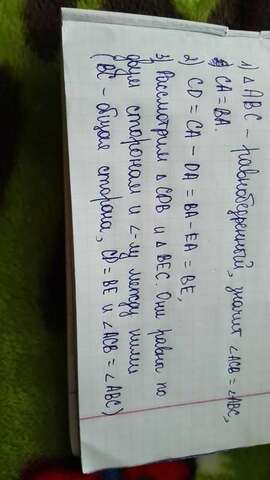 1) △ABC - равнобедренный, значит ∠ACB = ∠ABC,
CA = BA.
2) CD = CA - DA = BA - EA = BE,
3) Рассмотрим △CDB и △BEC. Они равны по
двум сторонам и ∠-лу между ними
(BC - общая сторона, CD = BE и ∠ACB = ∠ABC)